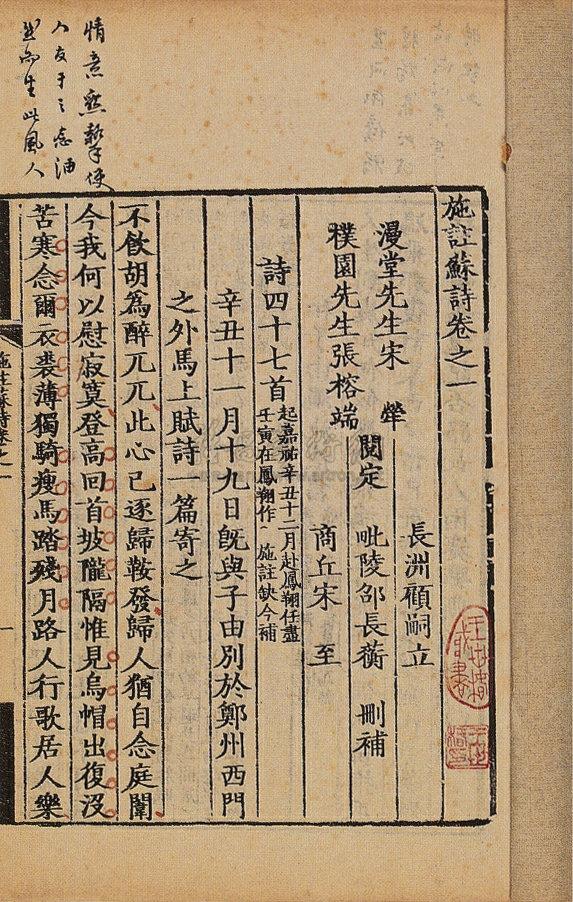 施註蘇詩卷之一
漫堂先生宋犖
樸園先生張榕端
閱定
長洲顧嗣立
毗陵邵長蘅
商丘宋至
刪補
詩四十七首 起嘉祐辛丑十二月赴鳳翔任盡
壬寅在鳳翔作 施註缺今補
辛丑十一月十九日旣與子由別於鄭州西門
之外馬上賦詩一篇寄之
不飲胡爲醉兀兀此心已逐歸鞍發歸人猶自念庭闈
今我何以慰寂寞登高回首坡隴隔惟見烏帽出復沒
苦寒念爾衣裘薄獨騎瘦馬踏殘月路人行歌居人樂
情意懇摯使
人友于之念油
然而生此風人
施註蘇詩卷之一